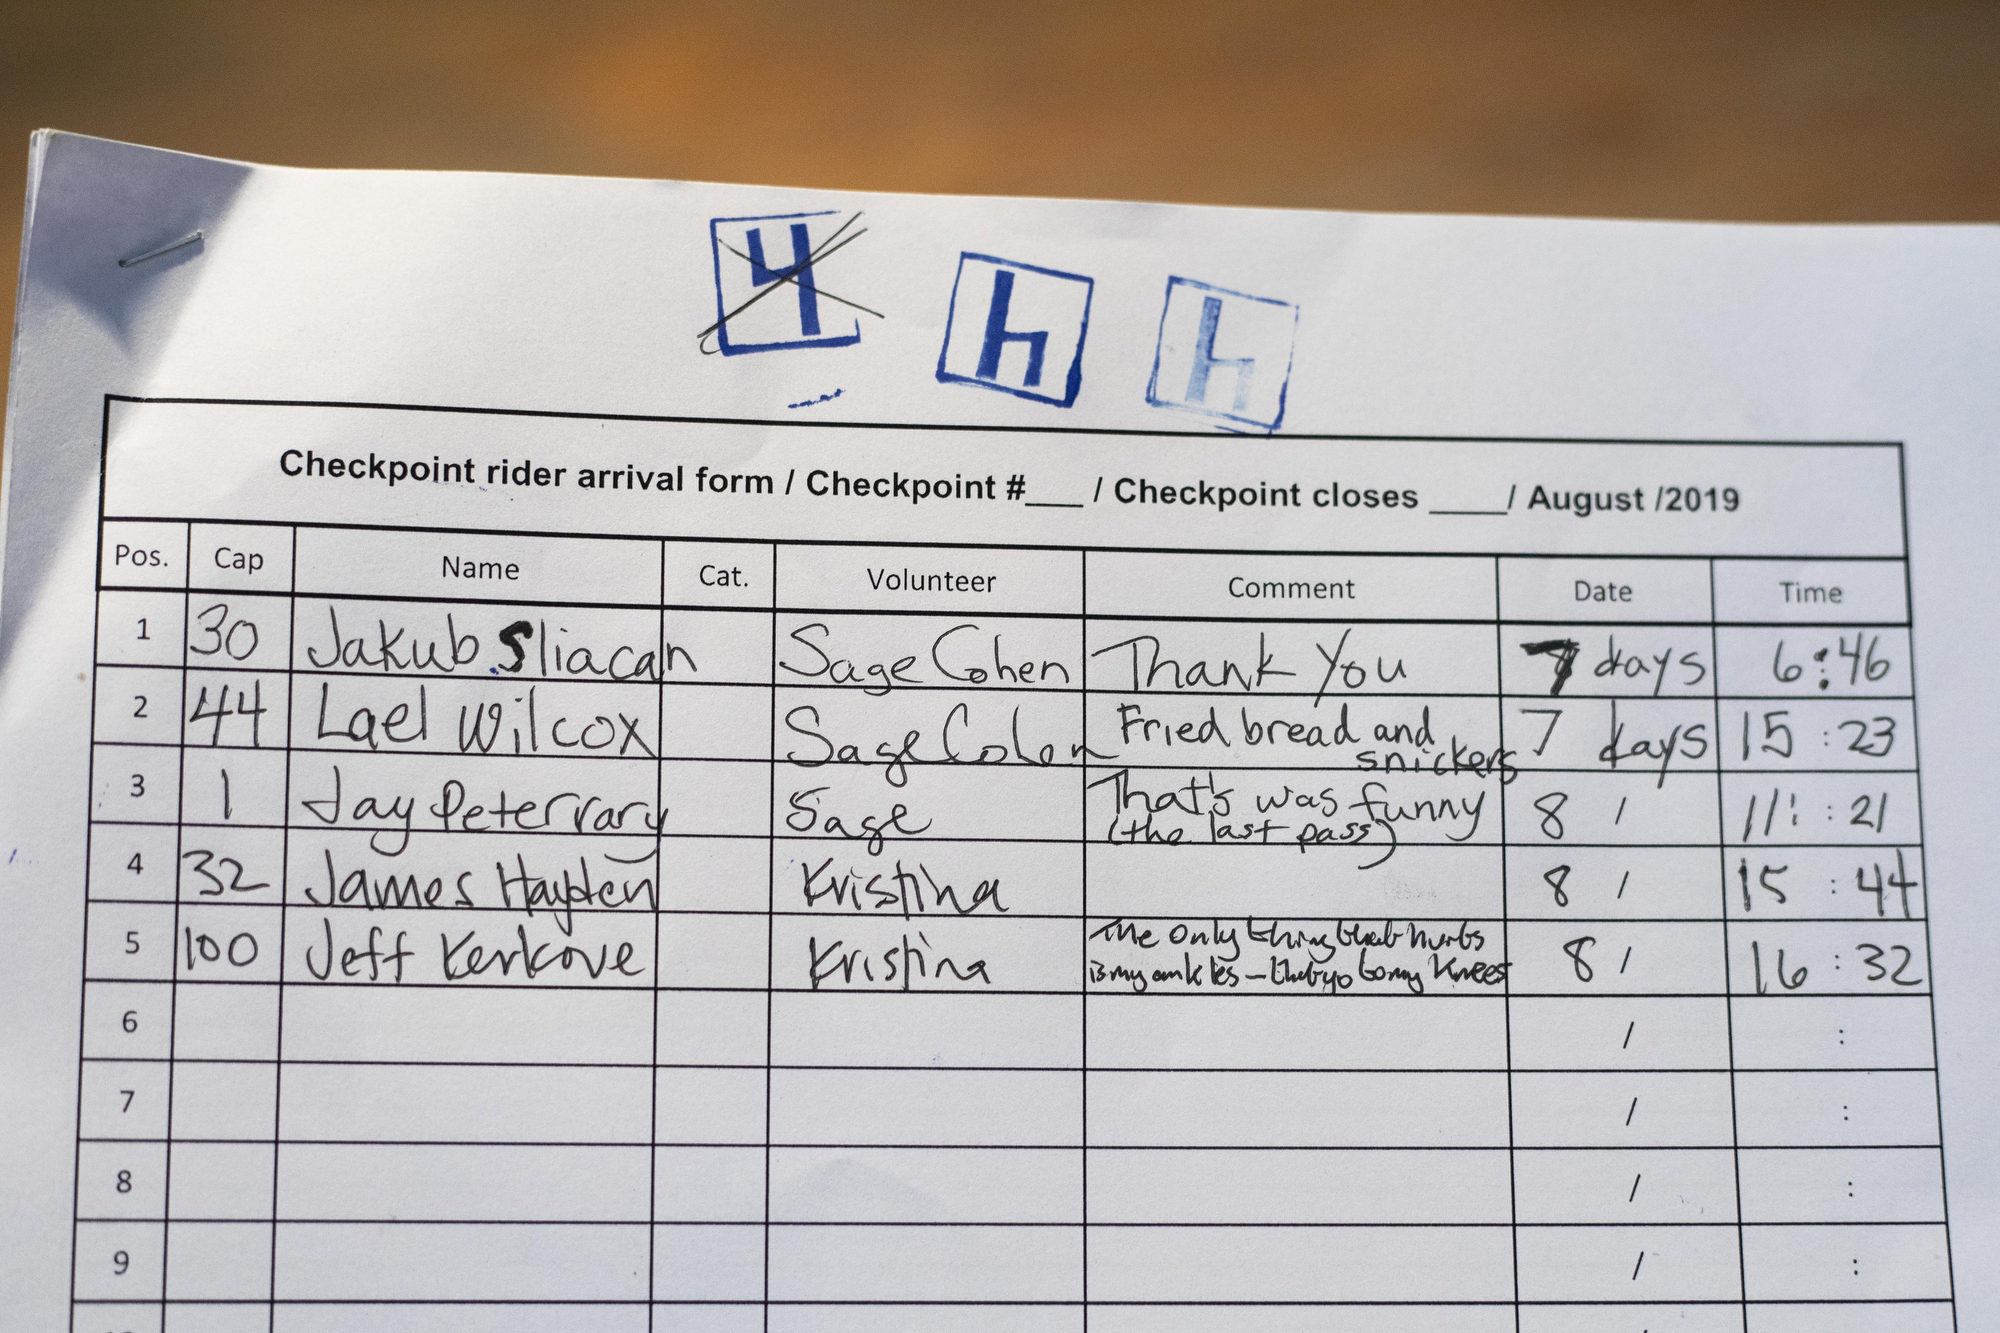 4 4 4
Checkpoint rider arrival form / Checkpoint #___ / Checkpoint closes ____/ August /2019
Pos. Cap Name Cat. Volunteer Comment Date Time
1 30 Jakub Sliacan Sage Cohen Thank You 7 days 6:46
2 44 Lael Wilcox Sage Cohen Fried bread and 7 days 15 : 23
snickers
3 1 Jay Peterrary Sage That's was funny 8 / 11 : 21
(the last pass)
4 32 James Hayden Kristina 8 / 15 : 44
5 100 Jeff Kerkove Kristina The only thing that hurts 8 / 16 : 32
is my ankles – my knees
6 / :
7 / :
8 / :
9 / :